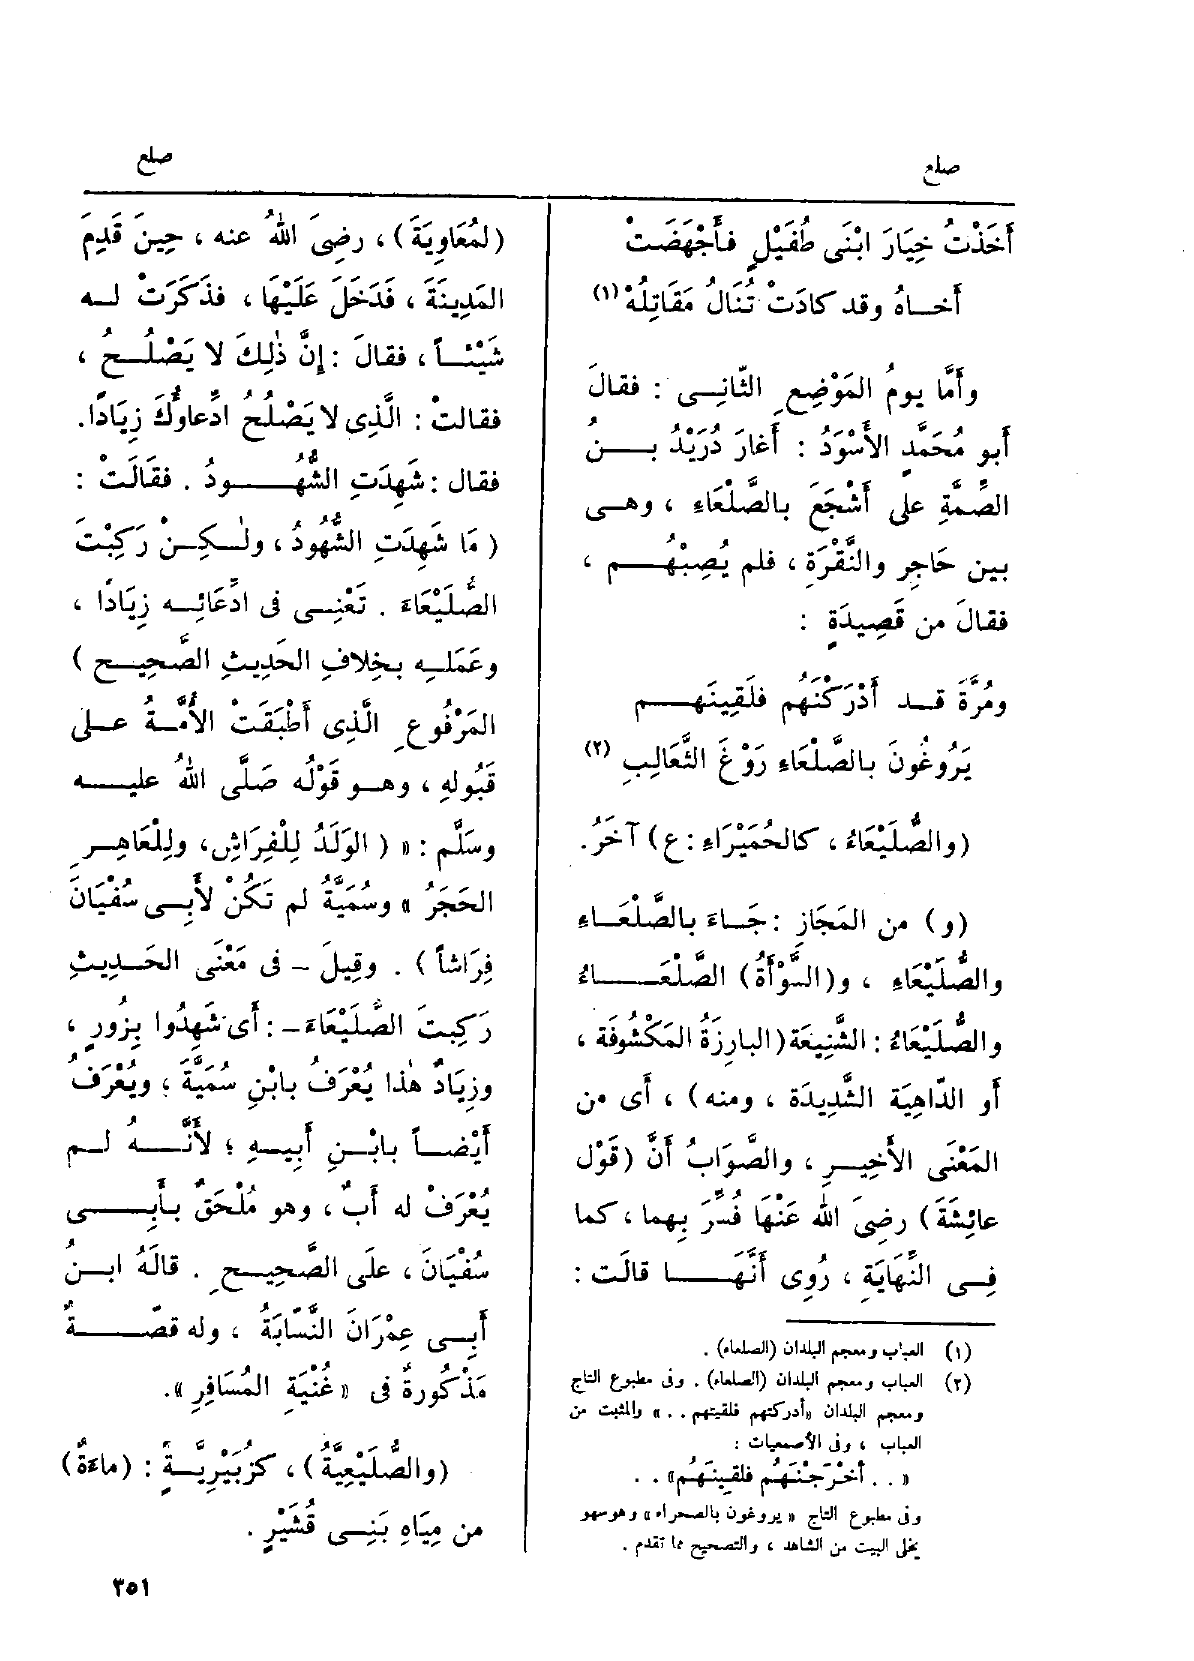 صلع
صلع
أَخَذْتُ خِيَارَ ابْنَى طُفَيْلٍ فأَجْهَضَتْ
أَخاهُ وقد كادَتْ تُنَالُ مَقَاتِلُهْ (١)
وأَمّا يومُ المَوْضِعِ الثّانِى : فقالَ
أَبو مُحَمَّدٍ الأَسْوَدُ : أَغارَ دُرَيْدُ بنُ
الصِّمَّةِ على أَشْجَعَ بالصَّلْعَاءِ ، وهى
بين حَاجِرٍ والنَّقْرَةِ ، فلم يُصِبْهُم ،
فقالَ من قَصِيدَةٍ :
ومُرَّةَ قد أَدْرَكْنَهُم فلَقِينَهُم
يَرُوغُونَ بالصَّلْعَاءِ رَوْغَ الثَّعَالِبِ (٢)
(والصُّلَيْعَاءُ ، كالحُمَيْرَاءِ : ع) آخَرُ .
(و) من المَجَازِ : جَاءَ بالصَّلْعَاءِ
والصُّلَيْعَاءِ ، و(السَّوْأَةُ) الصَّلْعَاءُ
والصُّلَيْعَاءُ : الشَّنِيعَة (البارِزَةُ المَكْشُوفَة ،
أَو الدّاهِيَة الشَّدِيدَة ، ومنه) ، أَى من
المَعْنَى الأَخِيرِ ، والصَّوَابُ أَنَّ (قَوْل
عائِشَةَ) رضِىَ الله عَنْهَا فُسِّرَ بِهِما ، كما
فِى النِّهَايَةِ ، رُوِى أَنَّهَا قالَت :
(١) العباب ومعجم البلدان (الصلعاء) .
(٢) العباب ومعجم البلدان (الصلعاء) . وفى مطبوع التاج
ومعجم البلدان «أدركتهم فلقيتهم . . » والمثبت من
العباب ، وفى الأصمعيات :
« . . أَخْرَجْنَهُم فلَقِينَهُم» . .
وفى مطبوع التاج « يروغون بالصحراء » وهو سهو
يخلى البيت من الشاهد ، والتصحيح مما تقدم .
(لمُعَاوِيَةَ) ، رضِىَ اللهُ عنه ، حِينَ قَدِمَ
المَدِينَةَ ، فَدَخَلَ عَلَيْهَا ، فذَكَرَتْ له
شَيْئاً ، فقالَ : إِنَّ ذٰلِكَ لا يَصْلُحُ ،
فقالتْ : الَّذِى لا يَصْلُحُ ادِّعاؤُكَ زِيَادًا .
فقال : شَهِدَتِ الشُّهُودُ . فقَالَتْ :
( مَا شَهِدَتِ الشُّهُودُ ، ولٰكِنْ رَكِبْتَ
الصُّلَيْعَاءَ . تَعْنِى فى ادِّعَائِه زِيَادًا ،
وعَمَلِه بخِلافِ الحَدِيثِ الصَّحِيحِ )
المَرْفُوعِ الَّذِى أَطْبَقَتْ الأُمَّةُ على
قَبُولِهِ ، وهو قَوْلُه صَلَّى اللهُ عليه
وسَلَّم : « ( الوَلَدُ لِلْفِرَاشِ ، ولِلْعَاهِرِ
الحَجَرُ » وسُمَيَّةُ لم تَكُنْ لأَبِى سُفْيَانَ
فِرَاشاً ) . وقِيلَ - فى مَعْنَى الحَدِيثِ
رَكِبتَ الصُّلَيْعَاءَ - : أَى شَهِدُوا بِزُورٍ ،
وزِيَادٌ هٰذا يُعْرَفُ بابْنِ سُمَيَّةَ ، ويُعْرَفُ
أَيْضاً بابْنِ أَبِيهِ ؛ لأَنَّهُ لم
يُعْرَفْ له أَبٌ ، وهو مُلْحَقٌ بأَبِى
سُفْيَانَ ، علَى الصَّحِيحِ . قالَهُ ابنُ
أَبِى عِمْرَانَ النَّسّابَةُ ، وله قصَّةٌ
مَذْكُورةٌ فى « غُنْيَةِ المُسَافِرِ » .
(والصُّلَيْعِيَّةُ) ، كزُبَيْرِيَّةٍ : (ماءَةٌ)
من مِيَاهِ بَنِى قُشَيْرٍ .
٣٥١